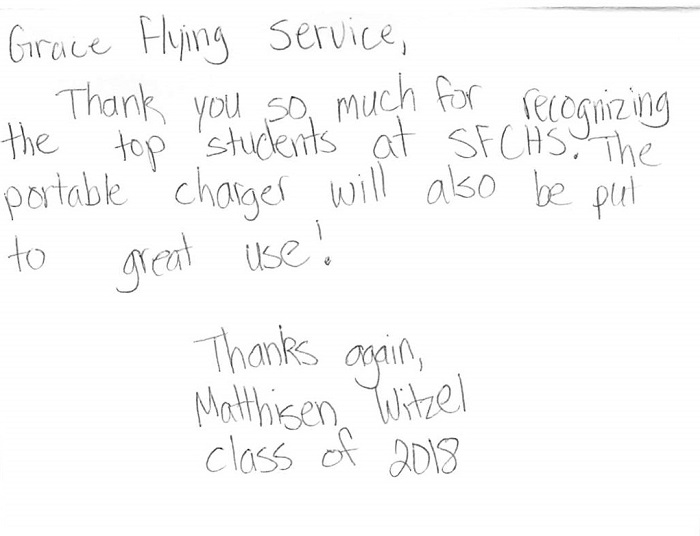 Grace Flying Service,
Thank you so much for recognizing
the top students at SFCHS. The
portable charger will also be put
to great use!
Thanks again,
Matthisen Witzel
class of 2018